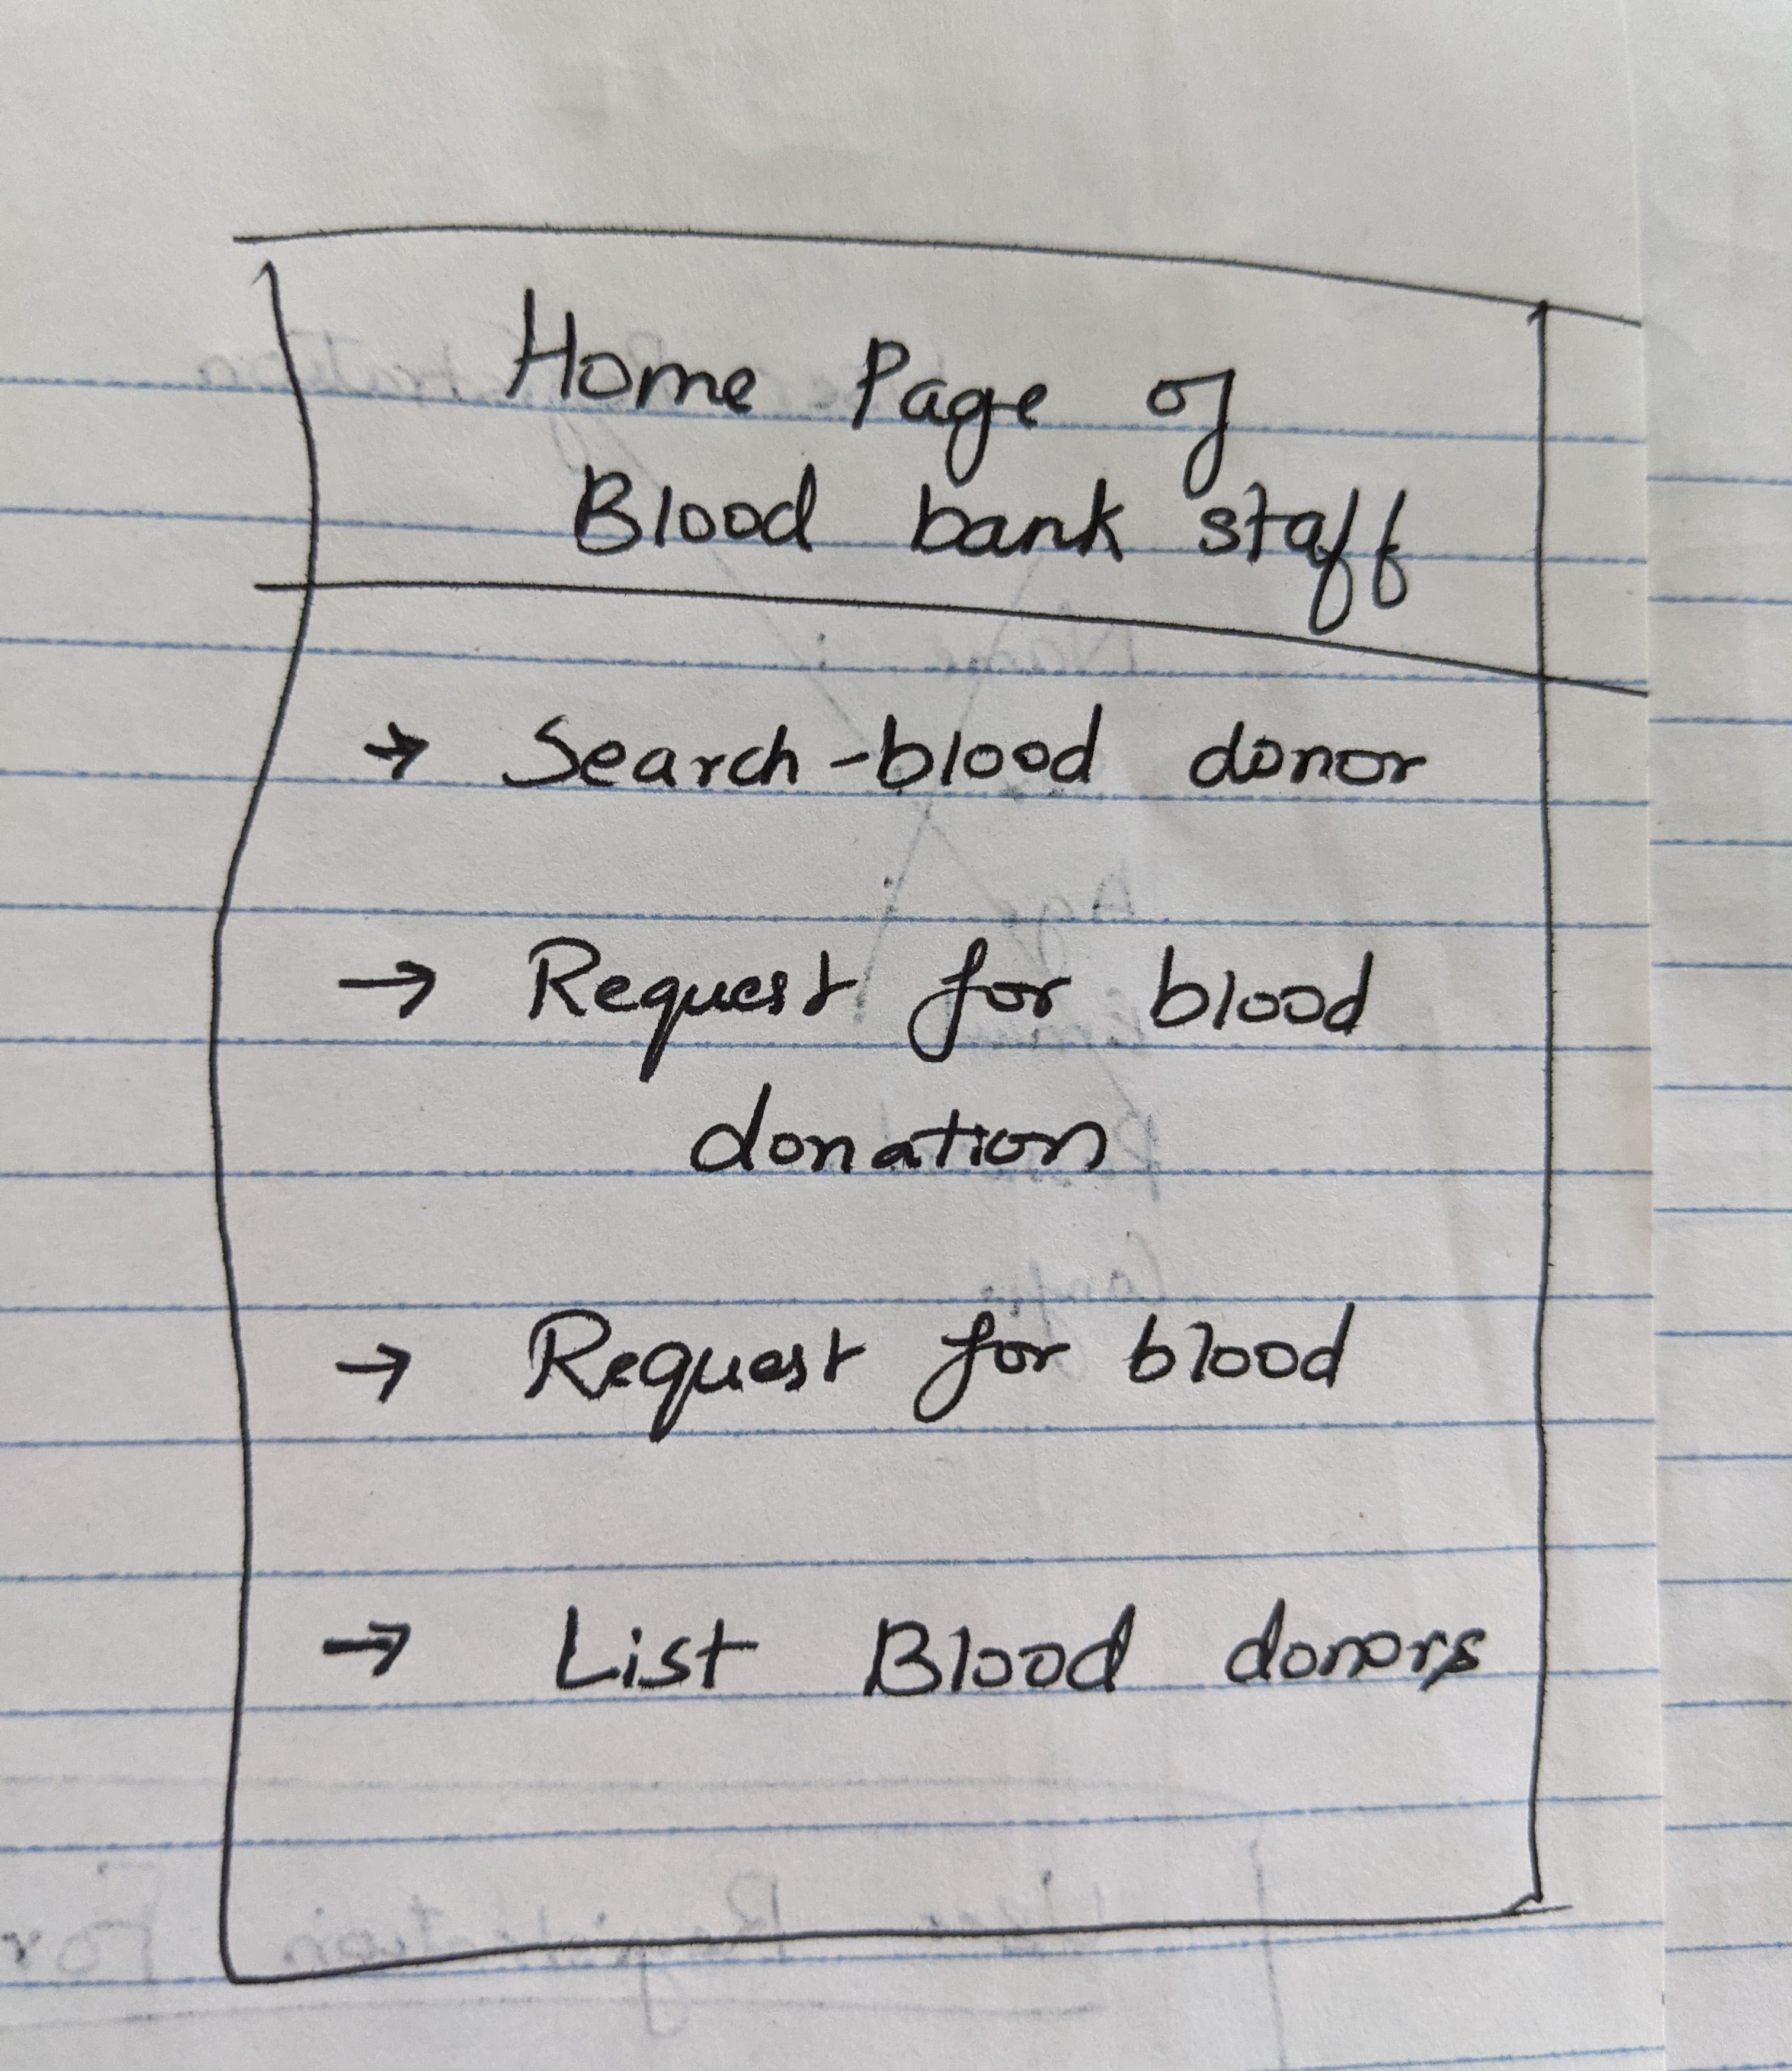 Home Page of
Blood bank staff
→ Search-blood donor
→ Request for blood
donation
→ Request for blood
→ List Blood donors